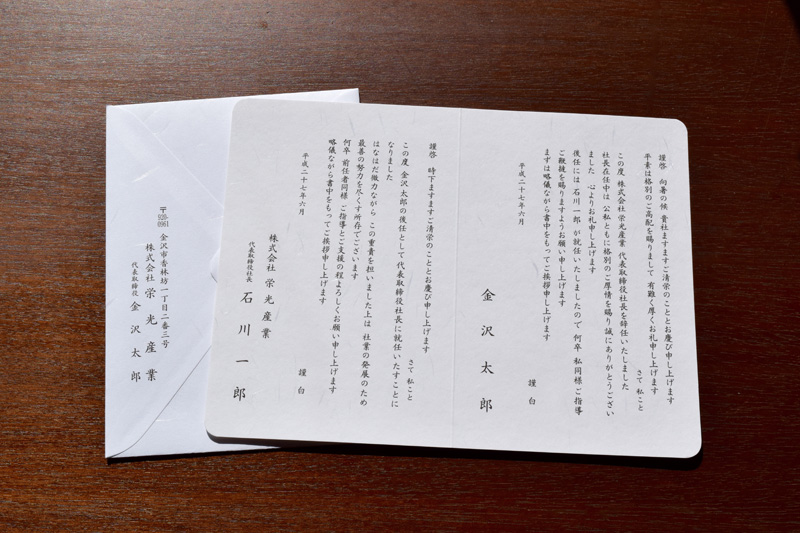 謹啓 向暑の候 貴社ますますご清栄のこととお慶び申し上げます
平素は格別のご高配を賜りまして 有難く厚くお礼申し上げます
さて 私こと
この度 株式会社栄光産業 代表取締役社長を辞任いたしました
社長在任中は 公私ともに格別のご厚情を賜り誠にありがとうござい
ました 心よりお礼申し上げます
後任には 石川一郎 が就任いたしましたので 何卒 私同様ご指導
ご鞭撻を賜りますようお願い申し上げます
まずは略儀ながら書中をもってご挨拶申し上げます
謹白
平成二十七年六月
金沢太郎
謹啓 時下ますますご清栄のこととお慶び申し上げます
さて 私こと
この度 金沢太郎の後任として代表取締役社長に就任いたすことに
なりました
はなはだ微力ながら この重責を担いました上は 社業の発展のため
最善の努力を尽くす所存でございます
何卒 前任者同様 ご指導とご支援の程よろしくお願い申し上げます
略儀ながら書中をもってご挨拶申し上げます
謹白
平成二十七年六月
株式会社 栄光産業
代表取締役社長 石川一郎
〒920-0961 金沢市香林坊一丁目二番三号
株式会社 栄光産業
代表取締役 金沢太郎